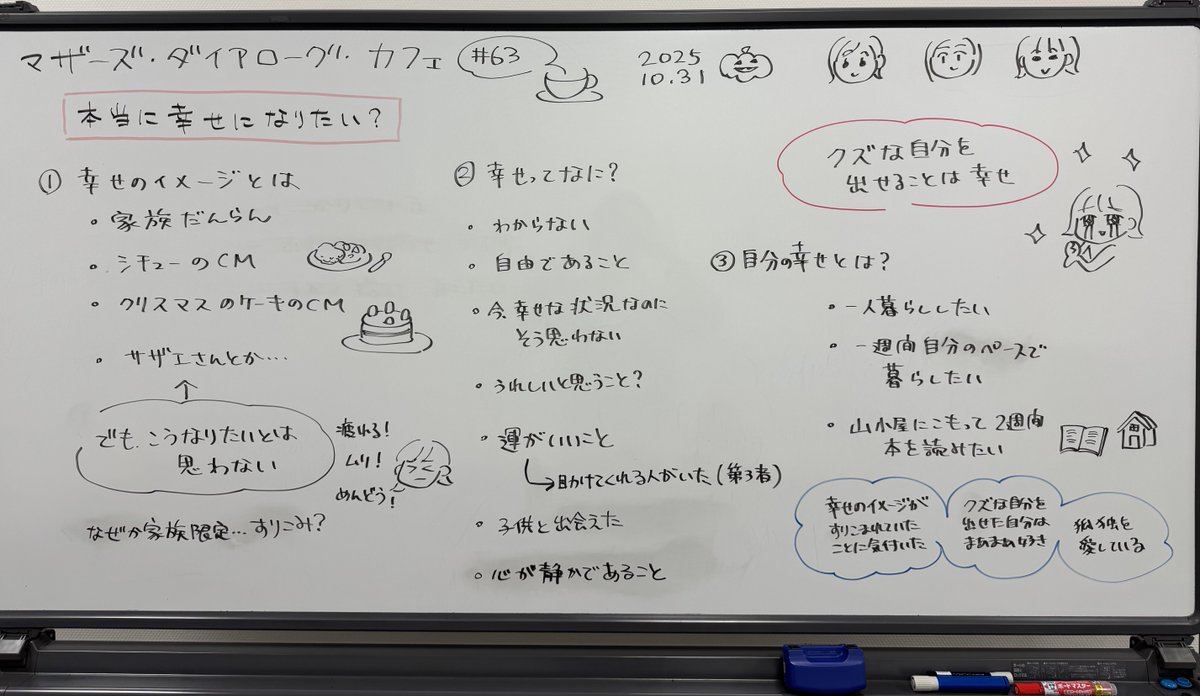 マザーズ・ダイアローグ・カフェ #63
2025
10.31
本当に幸せになりたい?
① 幸せのイメージとは
・家族だんらん
・シチューのCM
・クリスマスのケーキのCM
・サザエさんとか…
↑
でも、こうなりたいとは
思わない
疲れる!
ムリ!
めんどう!
なぜか家族限定…すりこみ?
② 幸せってなに?
・わからない
・自由であること
・今、幸せな状況なのに
そう思わない
・うれしいと思うこと?
・運がいいこと
↳助けてくれる人がいた(第3者)
・子供と出会えた
・心が静かであること
クズな自分を
出せることは幸せ
③自分の幸せとは?
・一人暮らししたい
・一週間自分のペースで
暮らしたい
・山小屋にこもって2週間
本を読みたい
幸せのイメージが
すりこまれていた
ことに気付いた
クズな自分を
出せた自分は
まあまあ好き
孤独を
愛している
ボードマスター